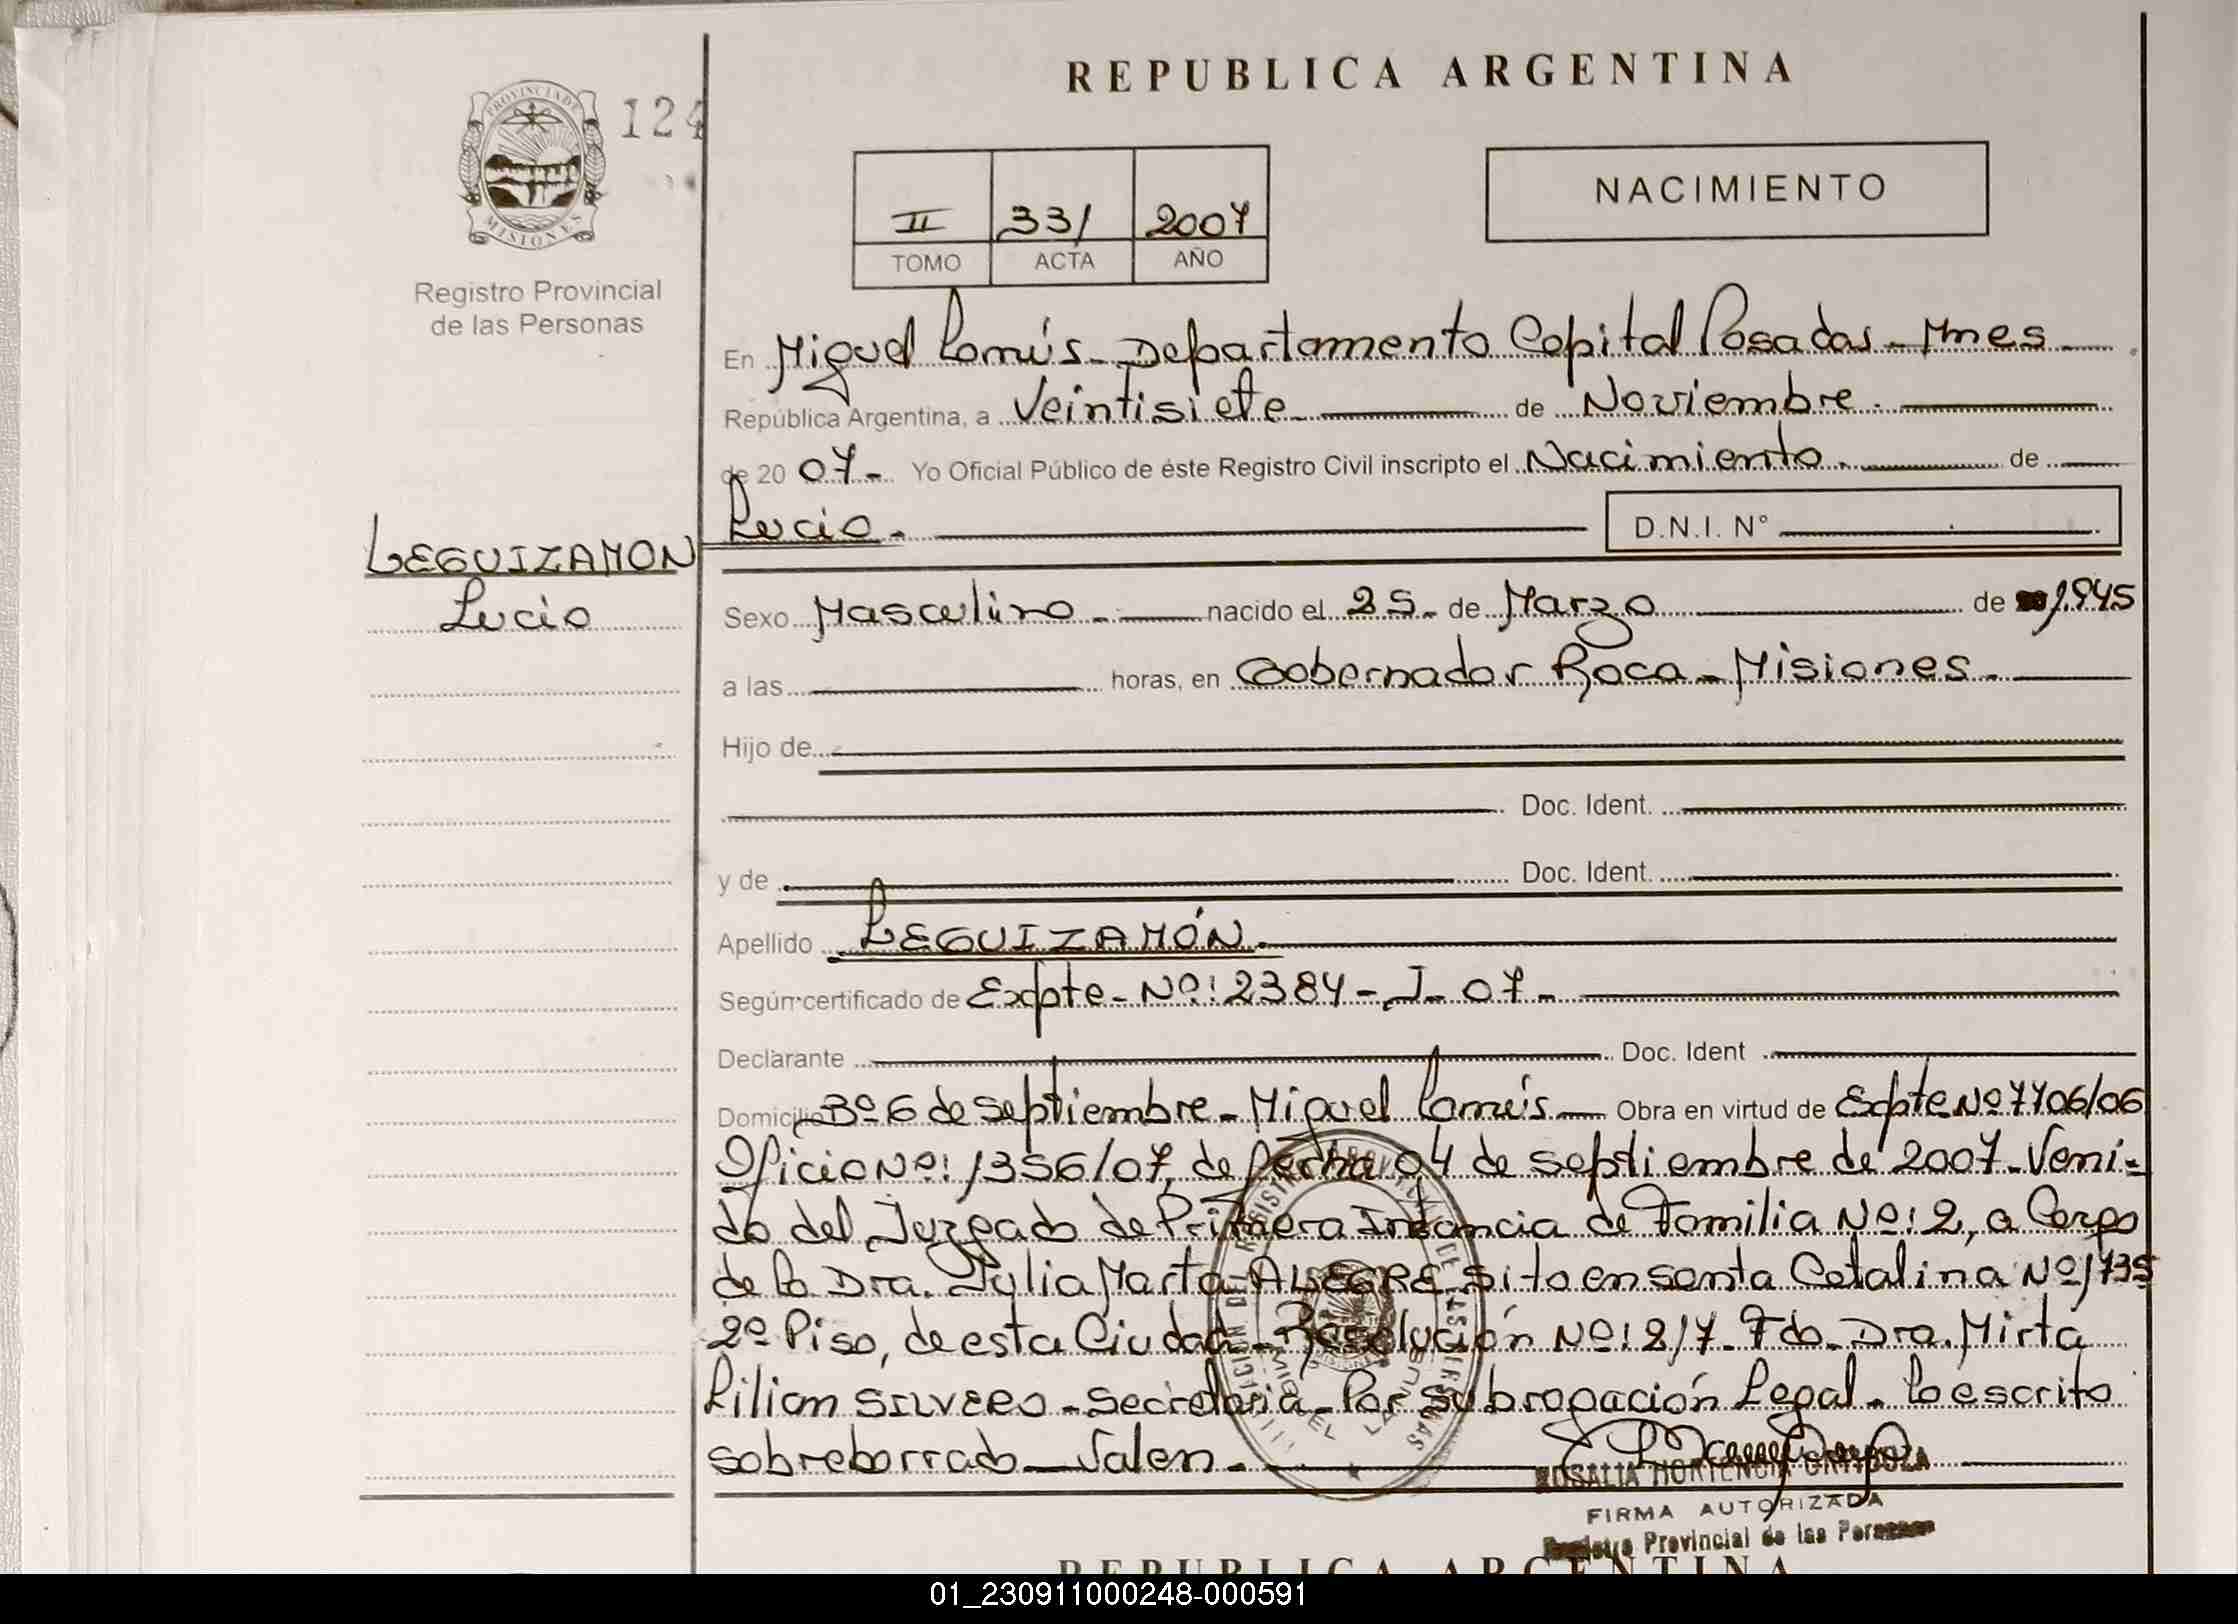 REPUBLICA ARGENTINA
PROVINCIA DE
MISIONES
124
Registro Provincial
de las Personas
II 331 2007
TOMO ACTA AÑO
NACIMIENTO
En Miguel Lanús - Departamento Capital Posadas - Mnes
República Argentina, a Veintisiete de Noviembre.
de 20 07- Yo Oficial Público de éste Registro Civil inscripto el Nacimiento. de
Lucio. D.N.I. N°
LEGUIZAMON
Lucio
Sexo Masculino. nacido el 25. de Marzo de 1945
a las horas, en Gobernador Roca - Misiones.
Hijo de
Doc. Ident.
y de Doc. Ident.
Apellido LEGUIZAMÓN.
Según certificado de Expte - Nº: 2384 - J - 07 -
Declarante Doc. Ident
Domicilio Bº 6 de septiembre - Miguel Lanús Obra en virtud de Expte Nº 7706/06
Oficio Nº: 1356/07, de fecha 04 de septiembre de 2007 - Veni-
do del Juzgado de Primera Instancia de Familia Nº: 2, a Cargo
de la Dra. Julia Marta ALEGRE sito en Santa Catalina Nº 1735
2º Piso, de esta Ciudad - Resolución Nº: 217. Fdo. Dra. Mirta
Lilian SILVERO - Secretaria - Por Subrogación Legal - Lo escrito
sobreborrado - Valen.
ROSALIA HORTENCIA
FIRMA AUTORIZADA
Registro Provincial de las Personas
REPUBLICA ARGENTINA
01_230911000248-000591